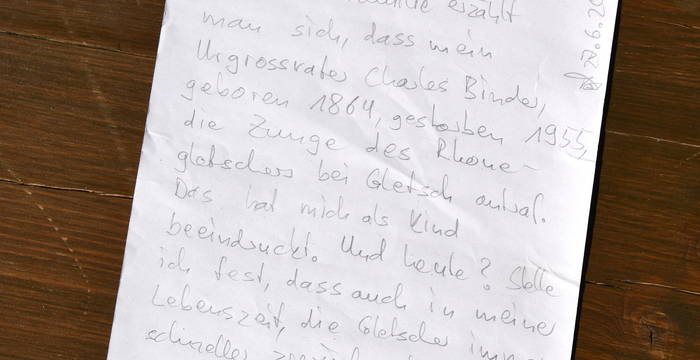 erzählt
man sich, dass mein
Urgrossvater Charles Binder,
geboren 1864, gestorben 1955,
die Zunge des Rhone-
gletschers bei Gletsch antraf.
Das hat mich als Kind
beeindruckt. Und heute? Stelle
ich fest, dass auch in meiner
Lebenszeit, die Gletscher
schneller